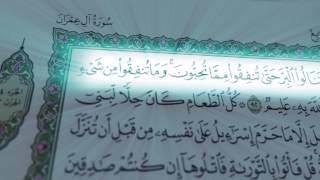 سُورَةُ آلِ عِمْرَانَ
تَنَالُوا۟ ٱلْبِرَّ حَتَّىٰ تُنفِقُوا۟ مِمَّا تُحِبُّونَ ۚ وَمَا تُنفِقُوا۟ مِن شَىْءٍ
ٱللَّهَ بِهِۦ عَلِيمٌ ٩٢ كُلُّ ٱلطَّعَامِ كَانَ حِلًّا لِّبَنِىٓ
إِلَّا مَا حَرَّمَ إِسْرَٰٓءِيلُ عَلَىٰ نَفْسِهِۦ مِن قَبْلِ أَن تُنَزَّلَ
قُلْ فَأْتُوا۟ بِٱلتَّوْرَىٰةِ فَٱتْلُوهَآ إِن كُنتُمْ صَٰدِقِينَ